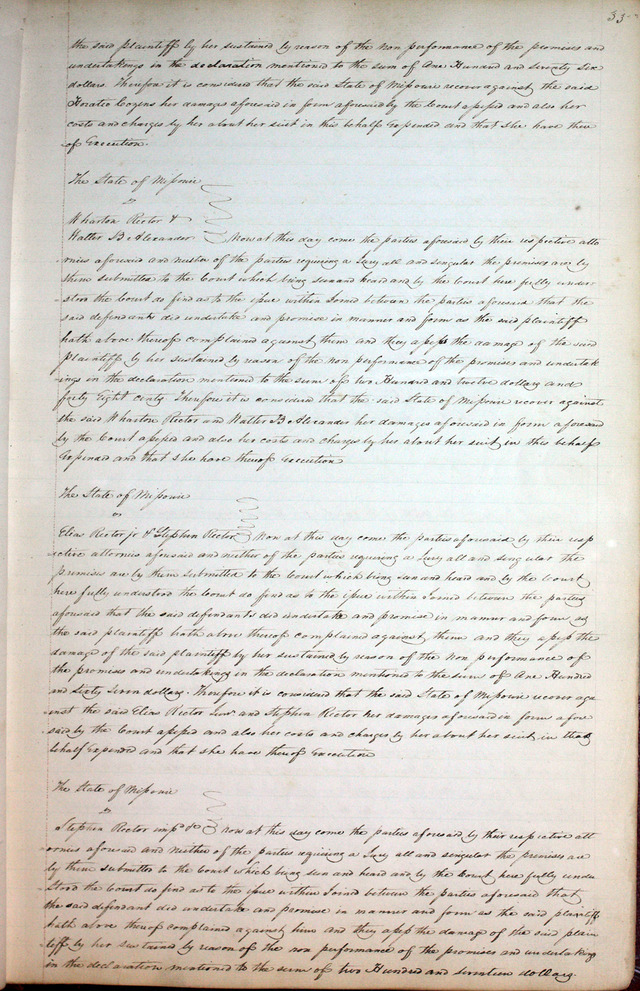 33
the said plaintiff by her sustained by reason of the non performance of the promises and
undertakings in the declaration mentioned to the sum of One Hundred and seventy Six
dollars. Therefore it is considered that the said State of Missouri recover against the said
Horatio Cozens her damages aforesaid in form aforesaid by the Court assessed and also her
costs and charges by her about her suit in this behalf Expended and that she have there
of Execution.
The State of Missouri
vs
Wharton Rector &
Walter B Alexander Now at this day come the parties aforesaid by their respective atto
rnies aforesaid and neither of the parties requiring a Jury all and singular the premises are by
them submitted to the Court which being seen and heard and by the Court here fully under
stood the Court do find as to the issue within Joined between the parties aforesaid that the
said defendants did undertake and promise in manner and form as the said plaintiff
hath above thereof complained against them and they assess the damage of the said
plaintiff by her sustained by reason of the non performance of the promises and undertak
ings in the declaration mentioned to the sum of two Hundred and twelve dollars and
forty Eight cents Therefore it is considered that the said State of Missouri recover against
the said Wharton Rector and Walter B Alexander her damages aforesaid in form aforesaid
by the Court assessed and also her costs and charges by her about her suit in this behalf
Expended and that she have thereof Execution
The State of Missouri
vs
Elias Rector jr & Stephen Rector Now at this day come the parties aforesaid by their resp
ective attornies aforesaid and neither of the parties requiring a Jury all and singular the
premises are by them submitted to the Court which being seen and heard and by the Court
here fully understood the Court do find as to the issue within Joined between the parties
aforesaid that the said defendants did undertake and promise in manner and form as
the said plaintiff hath above thereof complained against them and they assess the
damage of the said plaintiff by her sustained by reason of the non performance of
the promises and undertakings in the declaration mentioned to the sum of One Hundred
and Sixty Seven dollars. Therefore it is considered that the said State of Missouri recover aga
inst the said Elias Rector and Stephen Rector her damages aforesaid in form afore
said by the Court assessed and also her costs and charges by her about her suit in this
behalf Expended and that she have thereof Execution
The State of Missouri
vs
Stephen Rector imp & Now at this day come the parties aforesaid by their respective att
ornies aforesaid and Neither of the parties requiring a Jury all and singular the premises are
by them submitted to the Court which being seen and heard and by the Court here fully under
stood the Court do find as to the issue within Joined between the parties aforesaid that
the said defendant did undertake and promise in manner and form as the said plaintiff
hath above thereof complained against him and they assess the damage of the said plain
tiff by her sustained by reason of the non performance of the promises and undertaking
in the declaration mentioned to the sum of two Hundred and seventeen dollars.